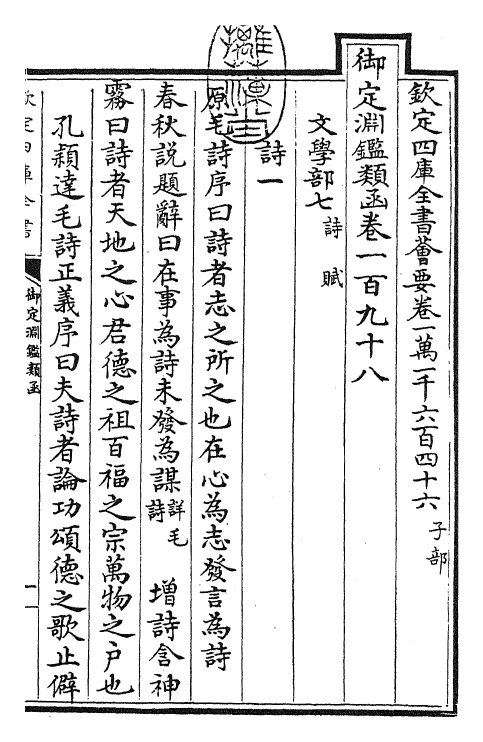 欽定四庫全書薈要卷一萬一千六百四十六 子部
御定淵鑑類函卷一百九十八
文學部七 詩 賦
詩一
原毛詩序曰詩者志之所之也在心為志發言為詩
春秋説題辭曰在事為詩未發為謀 詳毛詩 增詩含神
霧曰詩者天地之心君德之祖百福之宗萬物之户也
孔穎達毛詩正義序曰夫詩者論功頌德之歌止僻
欽定四庫全書
御定淵鑑類函
一